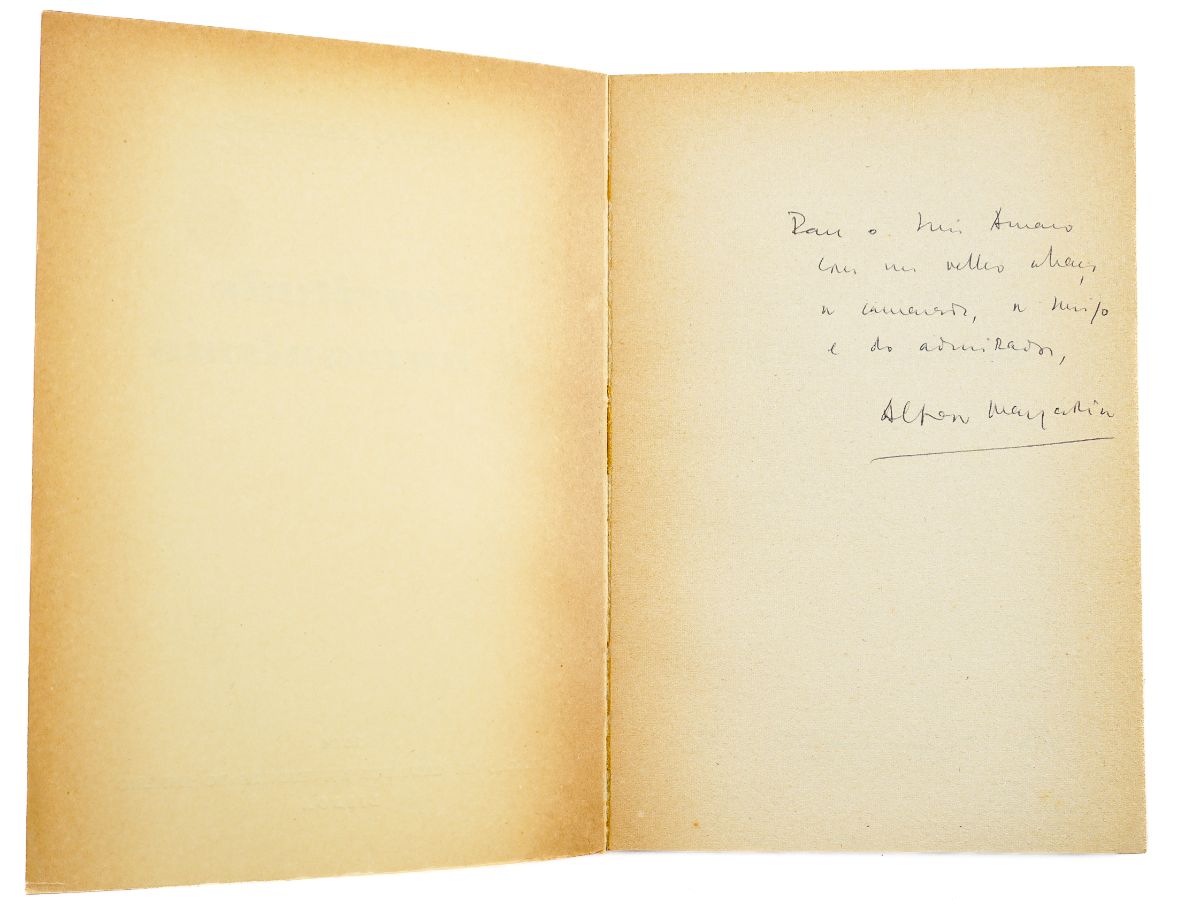 Para o Luís Amaro
com um velho abraço
do camarada, do amigo
e do admirador,
Alfredo Margarido